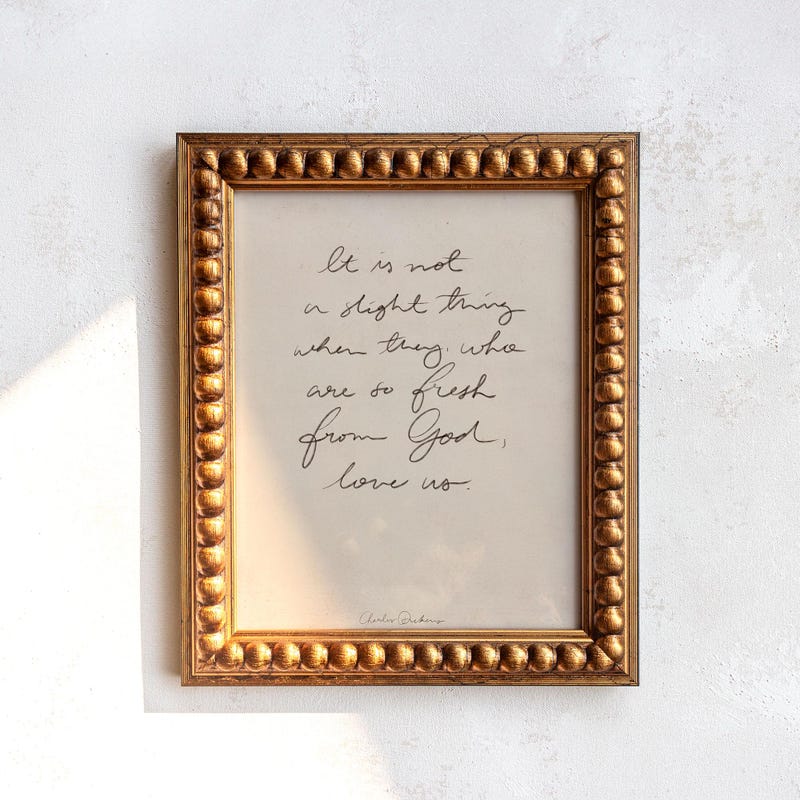 It is not
a slight thing
when they, who
are so fresh
from God,
love us.
Charles Dickens